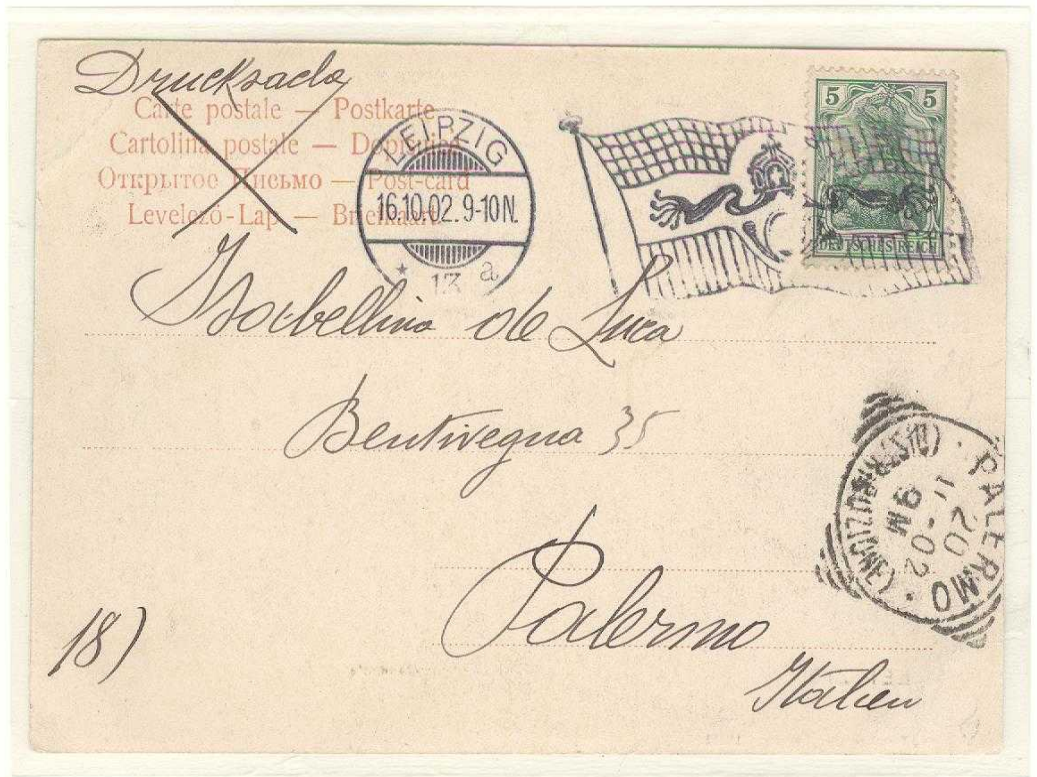 Drucksache
Carte postale — Postkarte
Cartolina postale — Dopisnica
Открытое Письмо — Post-card
Levelező-Lap — Briefkaart
LEIPZIG
16.10.02.9-10N.
* 13 a
5 5
DEUTSCHES REICH
Isabellina de Luca
Bentivegna 35
Palermo
Italien
18)
PALERMO
(DISTRIBUZIONE)
20
-02
9M